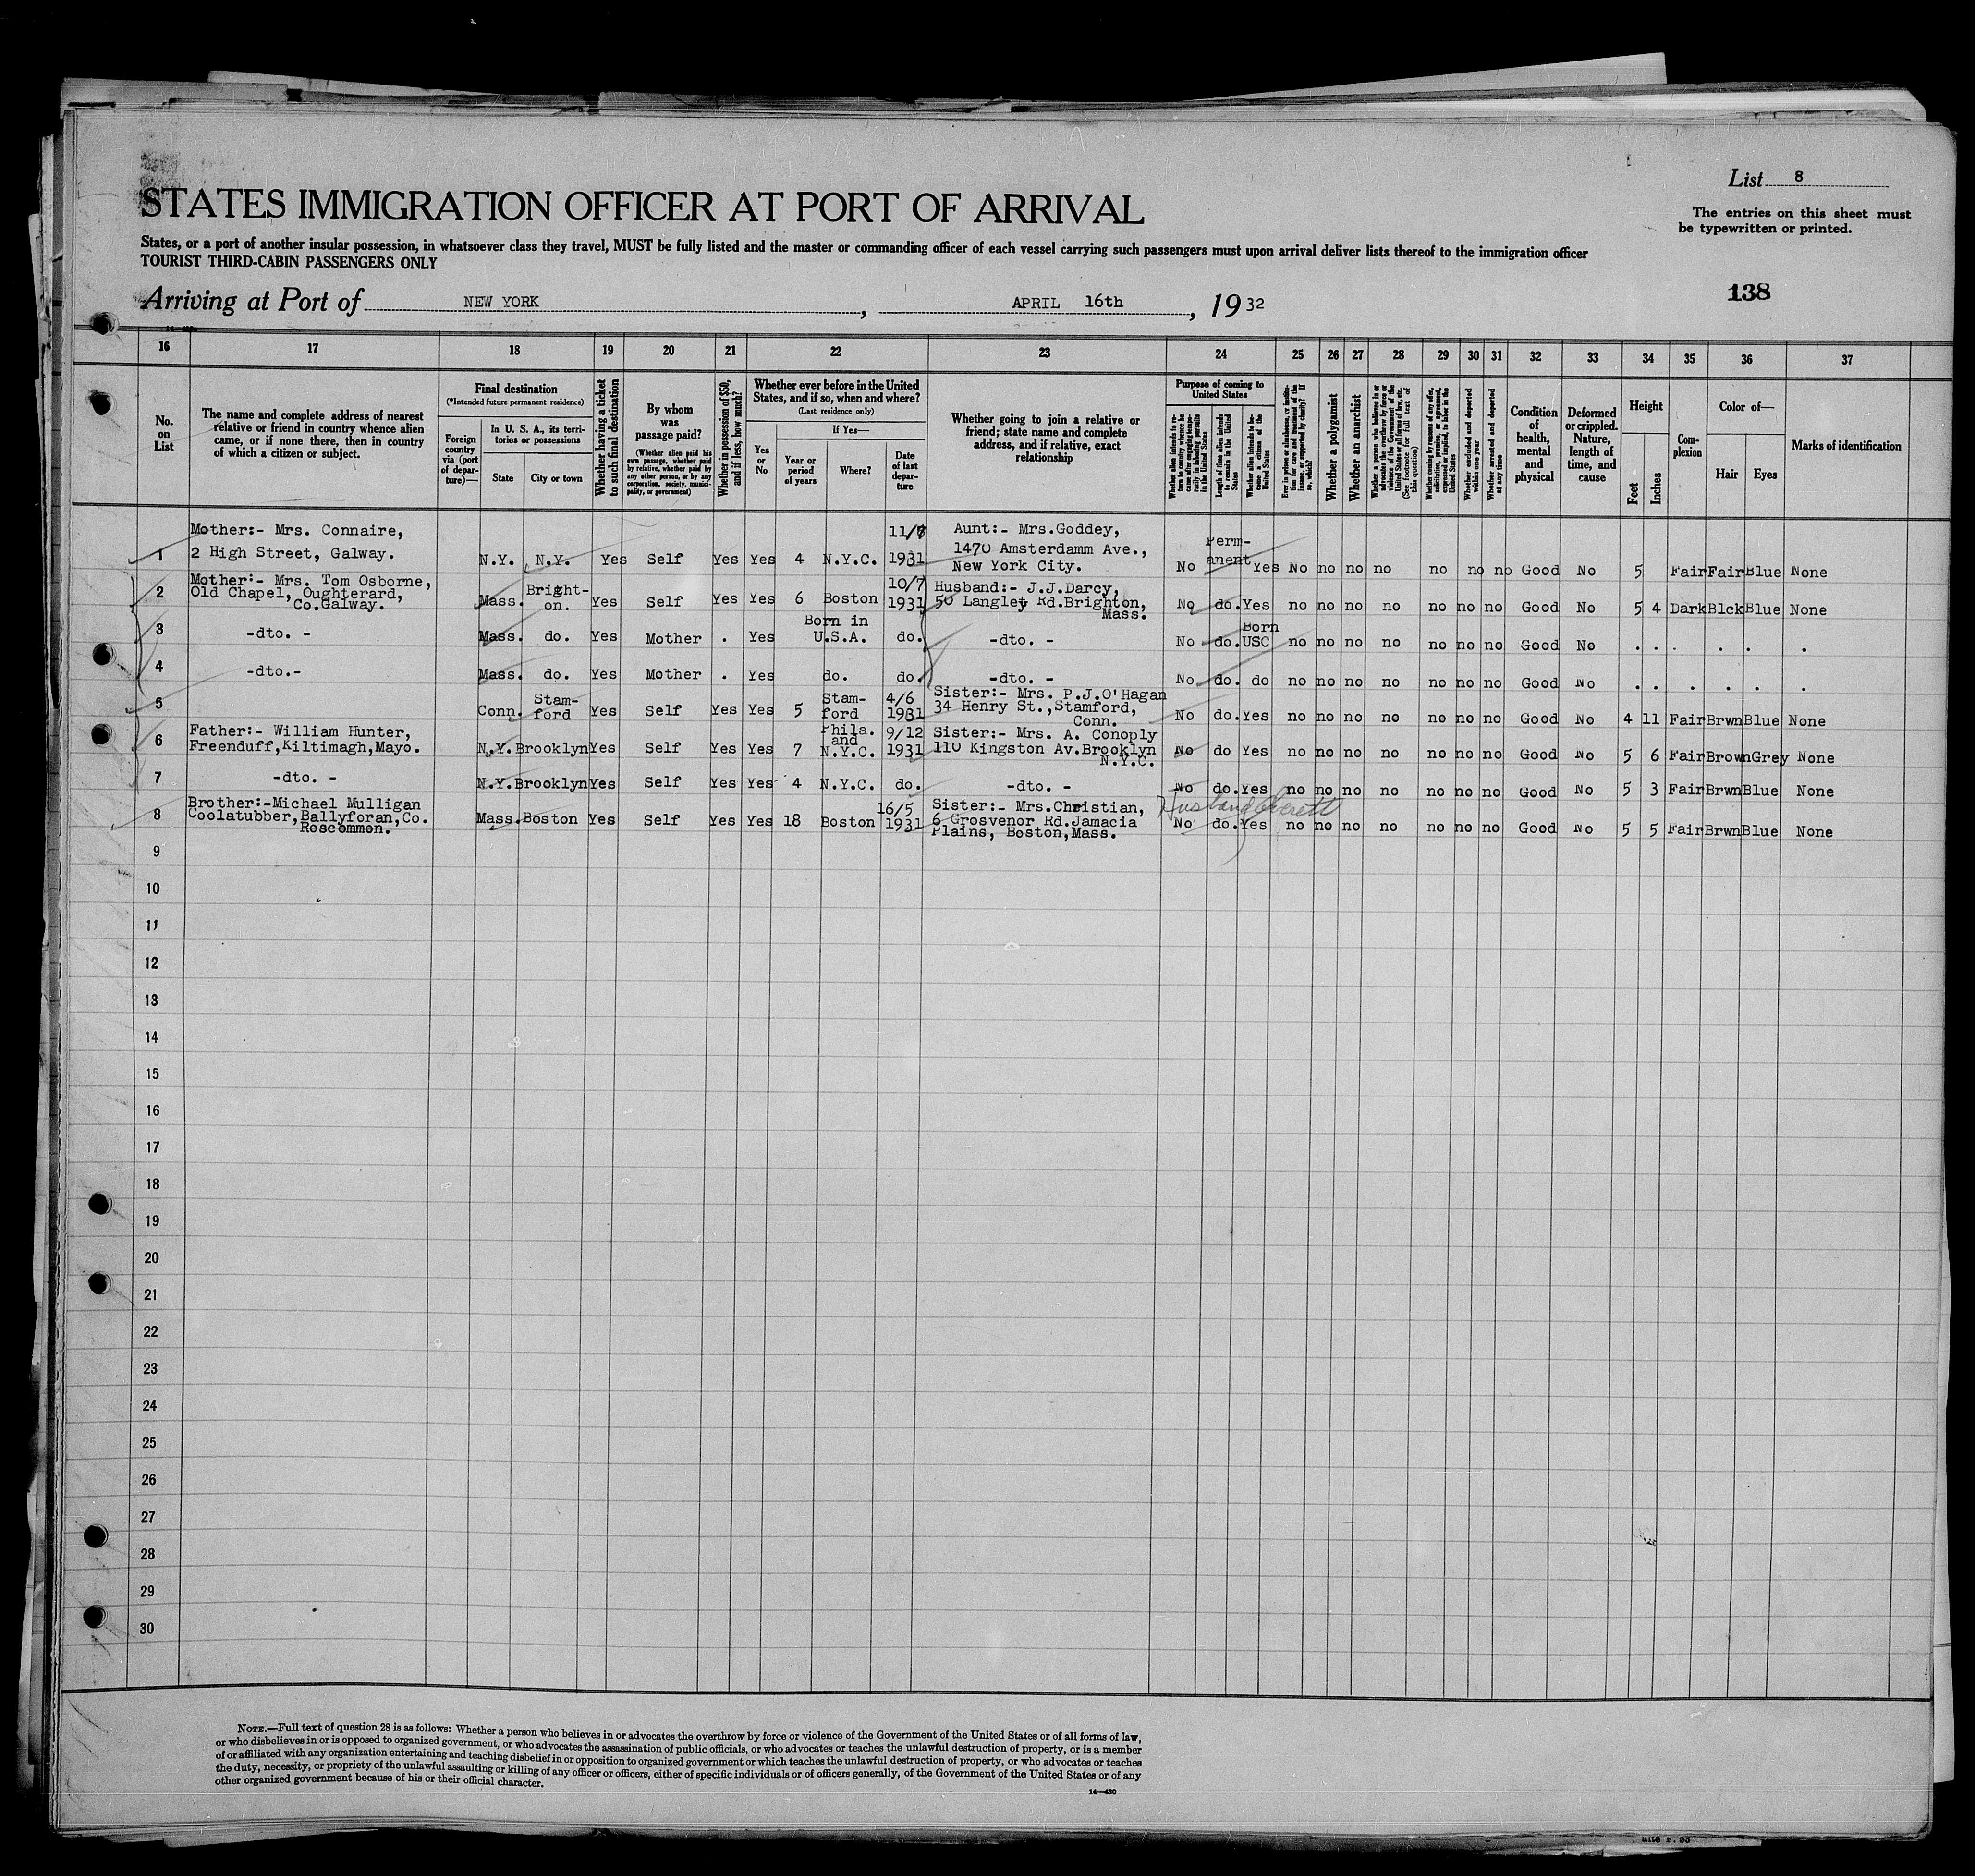 List 8
STATES IMMIGRATION OFFICER AT PORT OF ARRIVAL
The entries on this sheet must
be typewritten or printed.
States, or a port of another insular possession, in whatsoever class they travel, MUST be fully listed and the master or commanding officer of each vessel carrying such passengers must upon arrival deliver lists thereof to the immigration officer
TOURIST THIRD-CABIN PASSENGERS ONLY
138
Arriving at Port of NEW YORK, APRIL 16th, 19 32
16 17 18 19 20 21 22 23 24 25 26 27 28 29 30 31 32 33 34 35 36 37
No.
on
List
The name and complete address of nearest
relative or friend in country whence alien
came, or if none there, then in country
of which a citizen or subject.
Final destination
(*Intended future permanent residence)
Foreign
country
via (port
of depar-
ture)—
In U. S. A., its terri-
tories or possessions
State
City or town
Whether having a ticket
to such final destination
By whom
was
passage paid?
(Whether alien paid his
own passage, whether paid
by relative, whether paid by
any other person, or by any
corporation, society, munici-
pality, or government)
Whether in possession of $50,
and if less, how much?
Whether ever before in the United
States, and if so, when and where?
(Last residence only)
Yes
or
No
If Yes—
Year or
period
of years
Where?
Date
of last
depar-
ture
Whether going to join a relative or
friend; state name and complete
address, and if relative, exact
relationship
Purpose of coming to
United States
Whether alien intends to re-
turn to country whence he
came after engaging tempo-
rarily in laboring pursuits
in the United States
Length of time alien intends
to remain in the United
States
Whether alien intends to be-
come a citizen of the
United States
Ever in prison or almshouse, or institu-
tion for care and treatment of the
insane, or supported by charity? If
so, which?
Whether a polygamist
Whether an anarchist
Whether a person who believes in or
advocates the overthrow by force or
violence of the Government of the
United States or all forms of law, etc.
(See footnote for full text of
this question)
Whether coming by reason of any offer,
solicitation, promise, or agreement,
expressed or implied, to labor in the
United States
Whether excluded and deported
within one year
Whether arrested and deported
at any time
Condition
of
health,
mental
and
physical
Deformed
or crippled.
Nature,
length of
time, and
cause
Height
Feet
Inches
Com-
plexion
Color of—
Hair
Eyes
Marks of identification
Mother:- Mrs. Connaire, 11/ Aunt:- Mrs.Goddey, Perm-
1 2 High Street, Galway. N.Y. N.Y. Yes Self Yes Yes 4 N.Y.C. 1931 1470 Amsterdamm Ave., anent
New York City. No Yes No no no no no no no Good No 5 Fair Fair Blue None
Mother:- Mrs. Tom Osborne, 10/7 Husband:- J.J.Darcy,
2 Old Chapel, Oughterard, Mass. Bright- Yes Self Yes Yes 6 Boston 1931 50 Langley Rd.Brighton, No do. Yes no no no no no no no Good No 5 4 Dark Blck Blue None
Co.Galway. on. Mass.
Born in Born
3 -dto. - Mass. do. Yes Mother . Yes U.S.A. do. -dto. - No do. USC no no no no no no no Good No . . . . . .
4 -dto.- Mass. do. Yes Mother . Yes do. do. -dto. - No do. do no no no no no no no Good No . . . . . .
Stam- Stam- 4/6 Sister:- Mrs. P.J.O'Hagan
5 Conn. ford Yes Self Yes Yes 5 ford 1931 34 Henry St.,Stamford, No do. Yes no no no no no no no Good No 4 11 Fair Brwn Blue None
Conn.
Father:- William Hunter, Phila. 9/12 Sister:- Mrs. A. Conoply
6 Freenduff,Kiltimagh,Mayo. N.Y. Brooklyn Yes Self Yes Yes 7 and N.Y.C. 1931 110 Kingston Av.Brooklyn No do Yes no no no no no no no Good No 5 6 Fair Brown Grey None
N.Y.C.
7 -dto. - N.Y. Brooklyn Yes Self Yes Yes 4 N.Y.C. do. -dto. - No do. Yes no no no no no no no Good No 5 3 Fair Brwn Blue None
Brother:-Michael Mulligan 16/5 Sister:- Mrs.Christian, Husband Everett
8 Coolatubber,Ballyforan,Co. Mass. Boston Yes Self Yes Yes 18 Boston 1931 6 Grosvenor Rd.Jamacia No do. Yes no no no no no no no Good No 5 5 Fair Brwn Blue None
Roscommon. Plains, Boston,Mass.
9
10
11
12
13
14
15
16
17
18
19
20
21
22
23
24
25
26
27
28
29
30
NOTE.—Full text of question 28 is as follows: Whether a person who believes in or advocates the overthrow by force or violence of the Government of the United States or of all forms of law,
or who disbelieves in or is opposed to organized government, or who advocates the assassination of public officials, or who advocates or teaches the unlawful destruction of property, or is a member
of or affiliated with any organization entertaining and teaching disbelief in or opposition to organized government or which teaches the unlawful destruction of property, or who advocates or teaches
the duty, necessity, or propriety of the unlawful assaulting or killing of any officer or officers, either of specific individuals or of officers generally, of the Government of the United States or of any
other organized government because of his or their official character.
14—430